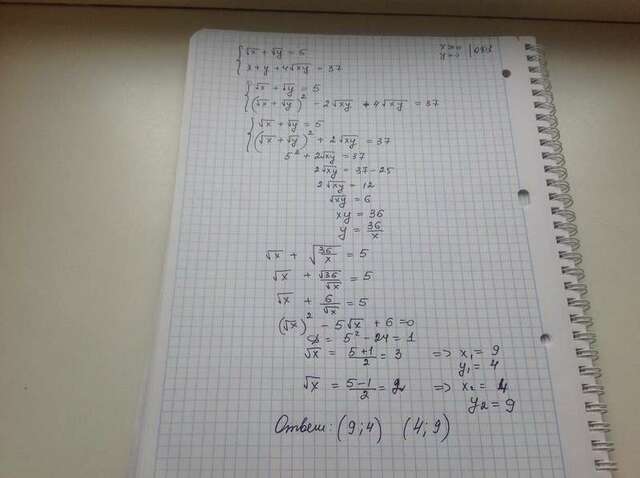 { √x + √y = 5
x + y + 4√xy = 37
{ √x + √y = 5
(√x + √y)² - 2√xy + 4√xy = 37
{ √x + √y = 5
(√x + √y)² + 2√xy = 37
5² + 2√xy = 37
2√xy = 37 - 25
2√xy = 12
√xy = 6
xy = 36
y = 36/x
√x + √(36/x) = 5
√x + √36/√x = 5
√x + 6/√x = 5
(√x)² - 5√x + 6 = 0
D = 5² - 24 = 1
√x = (5+1)/2 = 3 => x₁ = 9
y₁ = 4
√x = (5-1)/2 = 2 => x₂ = 4
y₂ = 9
Ответ: (9; 4) (4; 9)